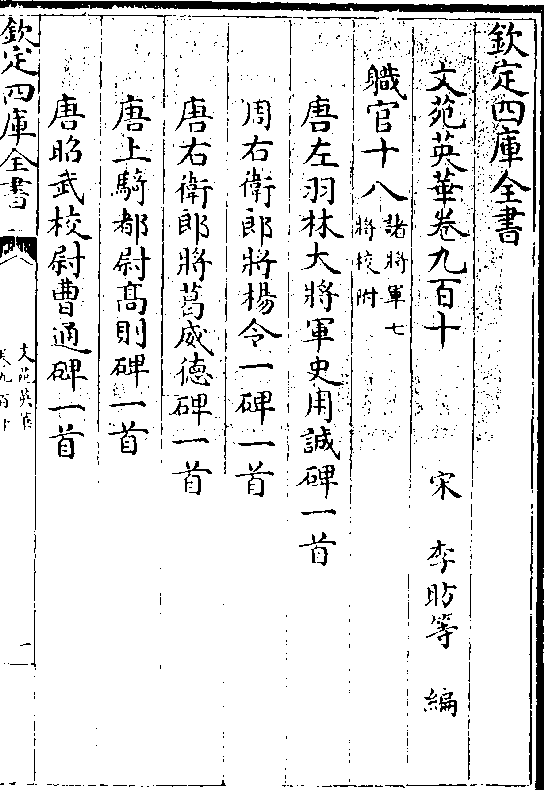 欽定四庫全書
文苑英華卷九百十　宋　李昉等　編
職官十八 諸將軍七 將校附
唐左羽林大將軍史用誠碑一首
周右衛郎將楊令一碑一首
唐右衛郎將葛威德碑一首
唐上騎都尉髙則碑一首
唐昭武校尉曹通碑一首
欽定四庫全書
文苑英華
卷九百十
二